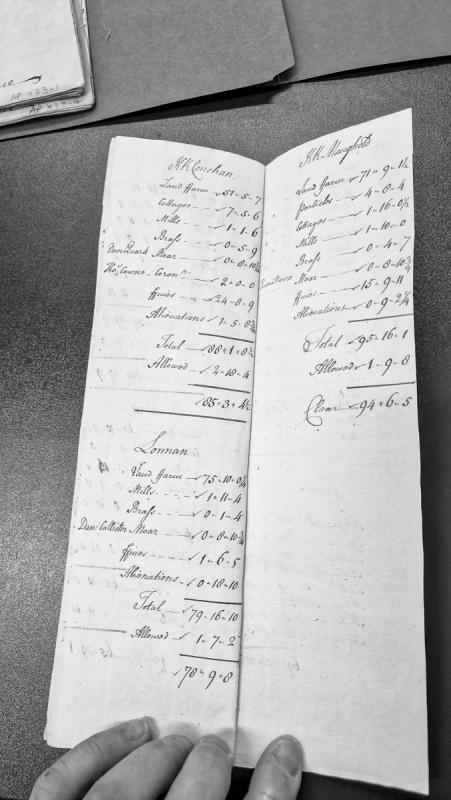 AP X23-1
AP X23-4
KK Conchan.
Land ffarm 51-5-7
Cottages 7-5-6
Mills 1-1-6
Brass 0-5-9
Dan Quark Moar 0-8-10¾
Tho: Cowne Coronr. 2-0-0
ffines 24-8-9
Alienations 1-5-8¾
Total 88-1-8½
Allowed 2-18-4
85-3-4½
Lonnan
Land ffarm 75-10-0¼
Mills 1-11-4
Brass 0-1-4
Dan: Callister Moar 0-8-10¾
ffines 1-6-5
Alienations 0-18-10
Total 79-16-10
Allowed 1-7-2
78-9-8
KK Maughold
Land ffarm 71-9-1½
Particles 4-8-4
Cottages 1-16-0½
Mills 1-10-0
Brass 0-4-7
Moar 0-8-10¾
ffines 15-9-11
Alienations 0-9-2¼
Total 95-16-1
Allowed 1-9-8
Clear 94-6-5